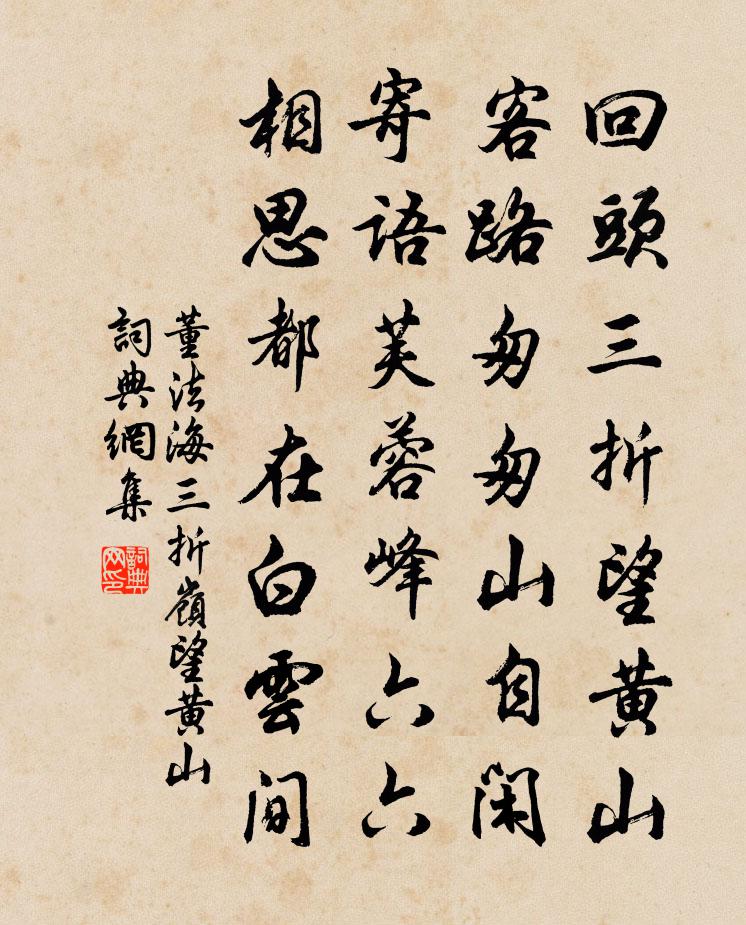 回頭三折望黄山
客路匆匆山自閑
寄語芙蓉峰六六
相思都在白雲間
董法海三折嶺望黄山
詞典網集
詞典网印